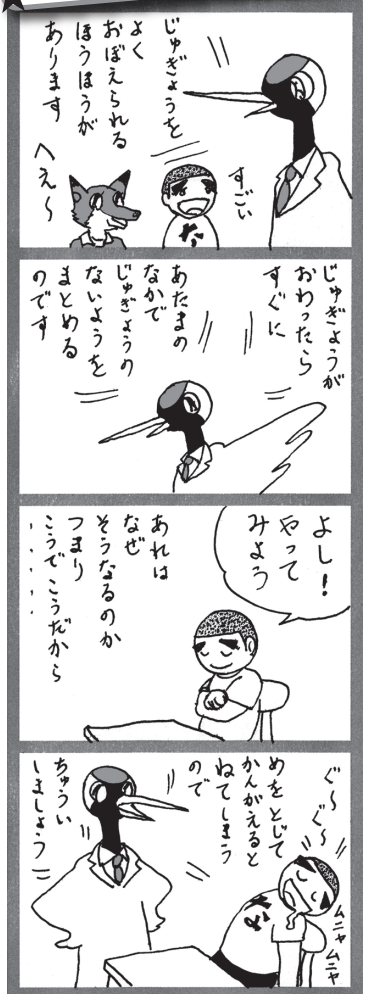 じゅぎょうを
よく
おぼえられる
ほうほうが
あります
すごい
へえ～
た
じゅぎょうが
おわったら
すぐに
あたまの
なかで
じゅぎょうの
ないようを
まとめる
のです
よし！
やって
みよう
あれは
なぜ
そうなるのか
つまり
こうでこうだから
・・・・・
ぐ～ぐ～
ムニャ
ムニャ
めをとじて
かんがえると
ねてしまう
ので
ちゅうい
しましょう